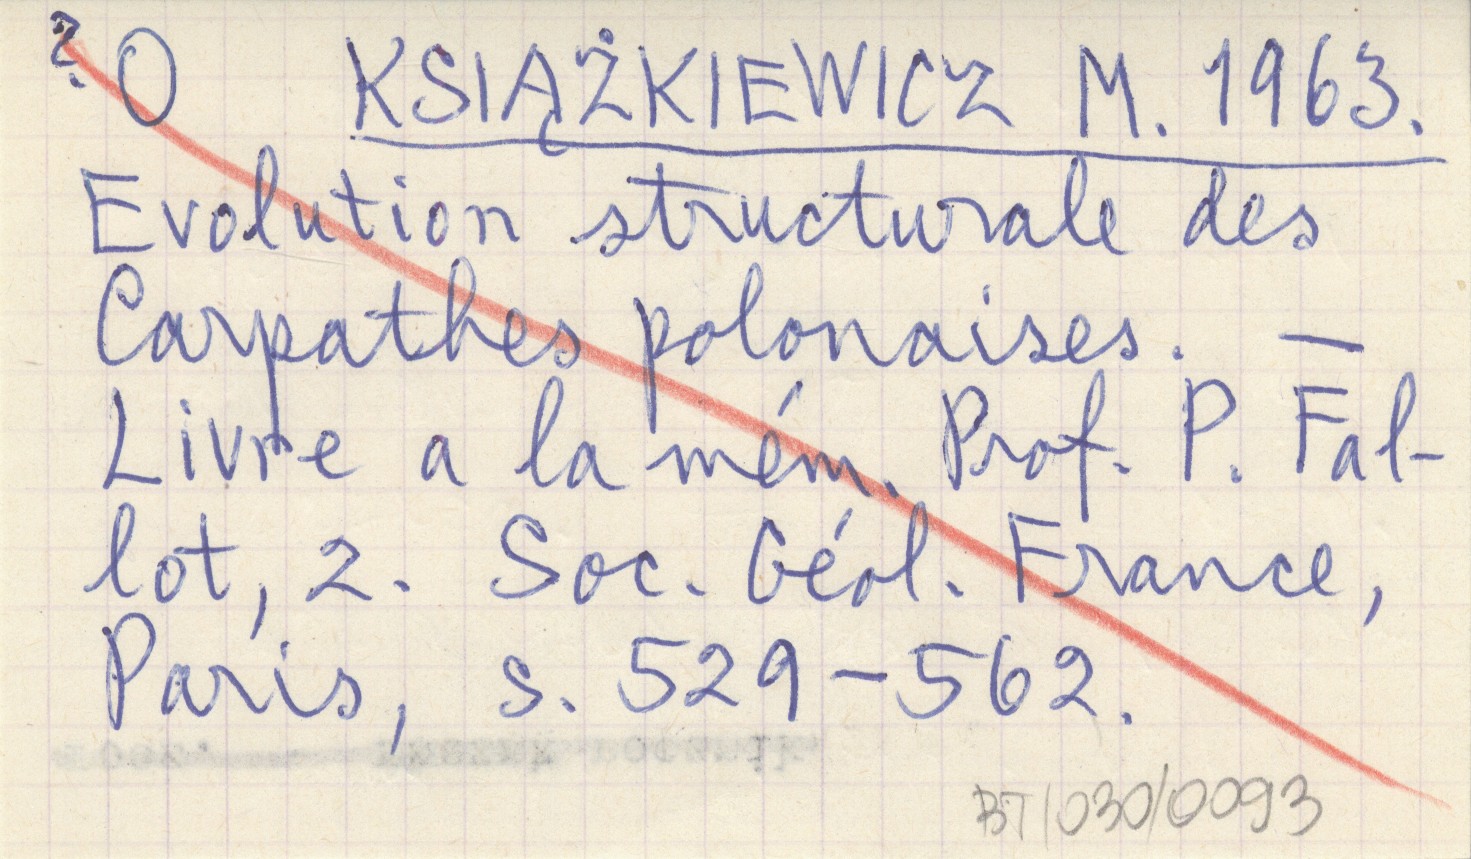 ? O KSIĄŻKIEWICZ M. 1963.
Evolution structurale des
Carpathes polonaises. —
Livre a la mém. Prof. P. Fal-
lot, 2. Soc. Géol. France,
Paris, s. 529-562.
BT/030/0093